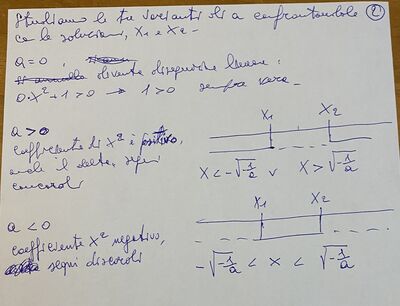 Studiamo le tre varianti di a confrontandole
con le soluzioni, X1 e X2 -
2
a = 0,
diventa disequazione lineare:
0·X²+1>0 → 1>0 sempre vera -
a > 0
coefficiente di X² è positivo,
anche il delta, segni
concordi
X1 X2
X < -√-1/a v X > √-1/a
a < 0
coefficiente X² negativo,
segni discordi
X1 X2
-√-1/a < X < √-1/a